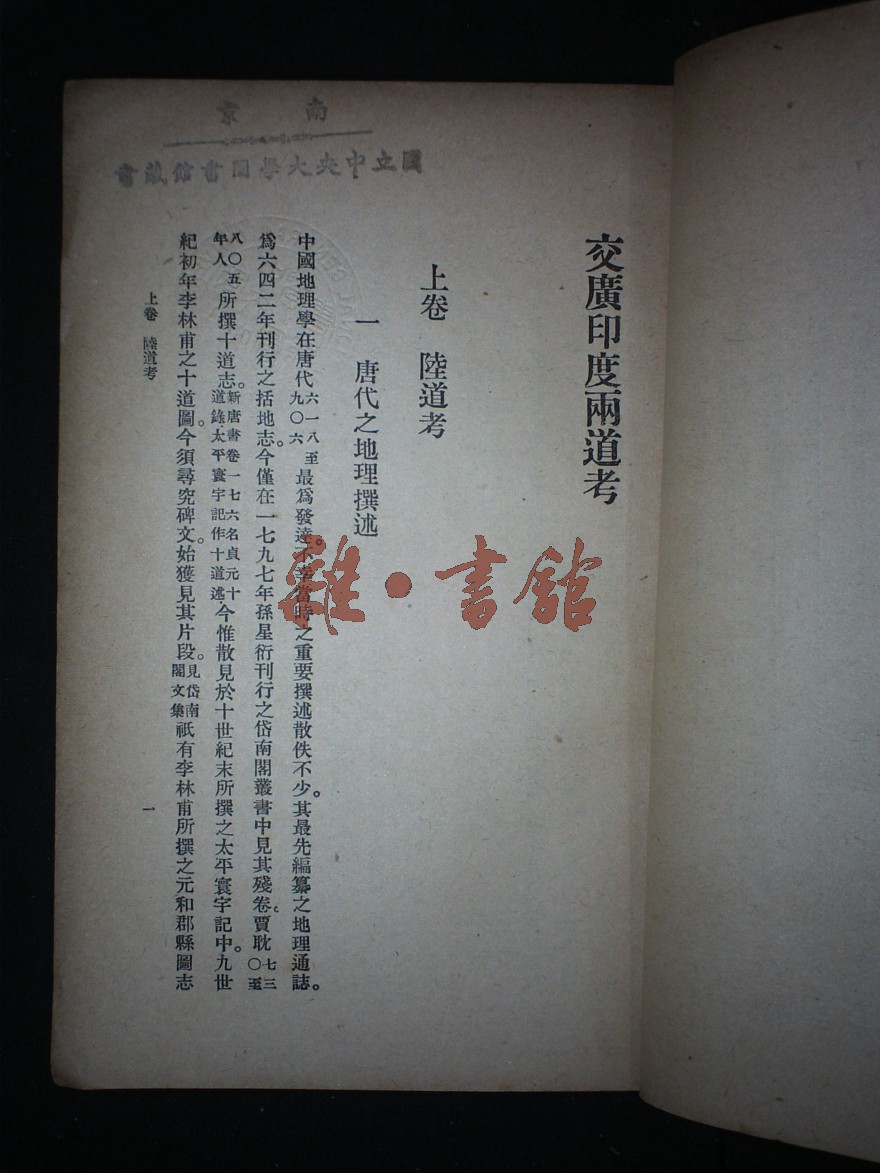 南京
國立中央大學圖書館藏書
交廣印度兩道考
上卷　陸道考
一　唐代之地理撰述
中國地理學在唐代六一八至九〇六最爲發達。不幸當時之重要撰述散佚不少。其最先編纂之地理通誌。
爲六四二年刊行之括地志。今僅在一七九七年孫星衍刊行之岱南閣叢書中見其殘卷。賈耽七三〇至
八〇五年人所撰十道志。新唐書卷一七六名貞元十道錄。太平寰宇記作十道述。今惟散見於十世紀末所撰之太平寰宇記中。九世
紀初年李林甫之十道圖。今須尋究碑文。始獲見其片段。見岱南閣文集祇有李林甫所撰之元和郡縣圖志
上卷　陸道考
一
雜·書館